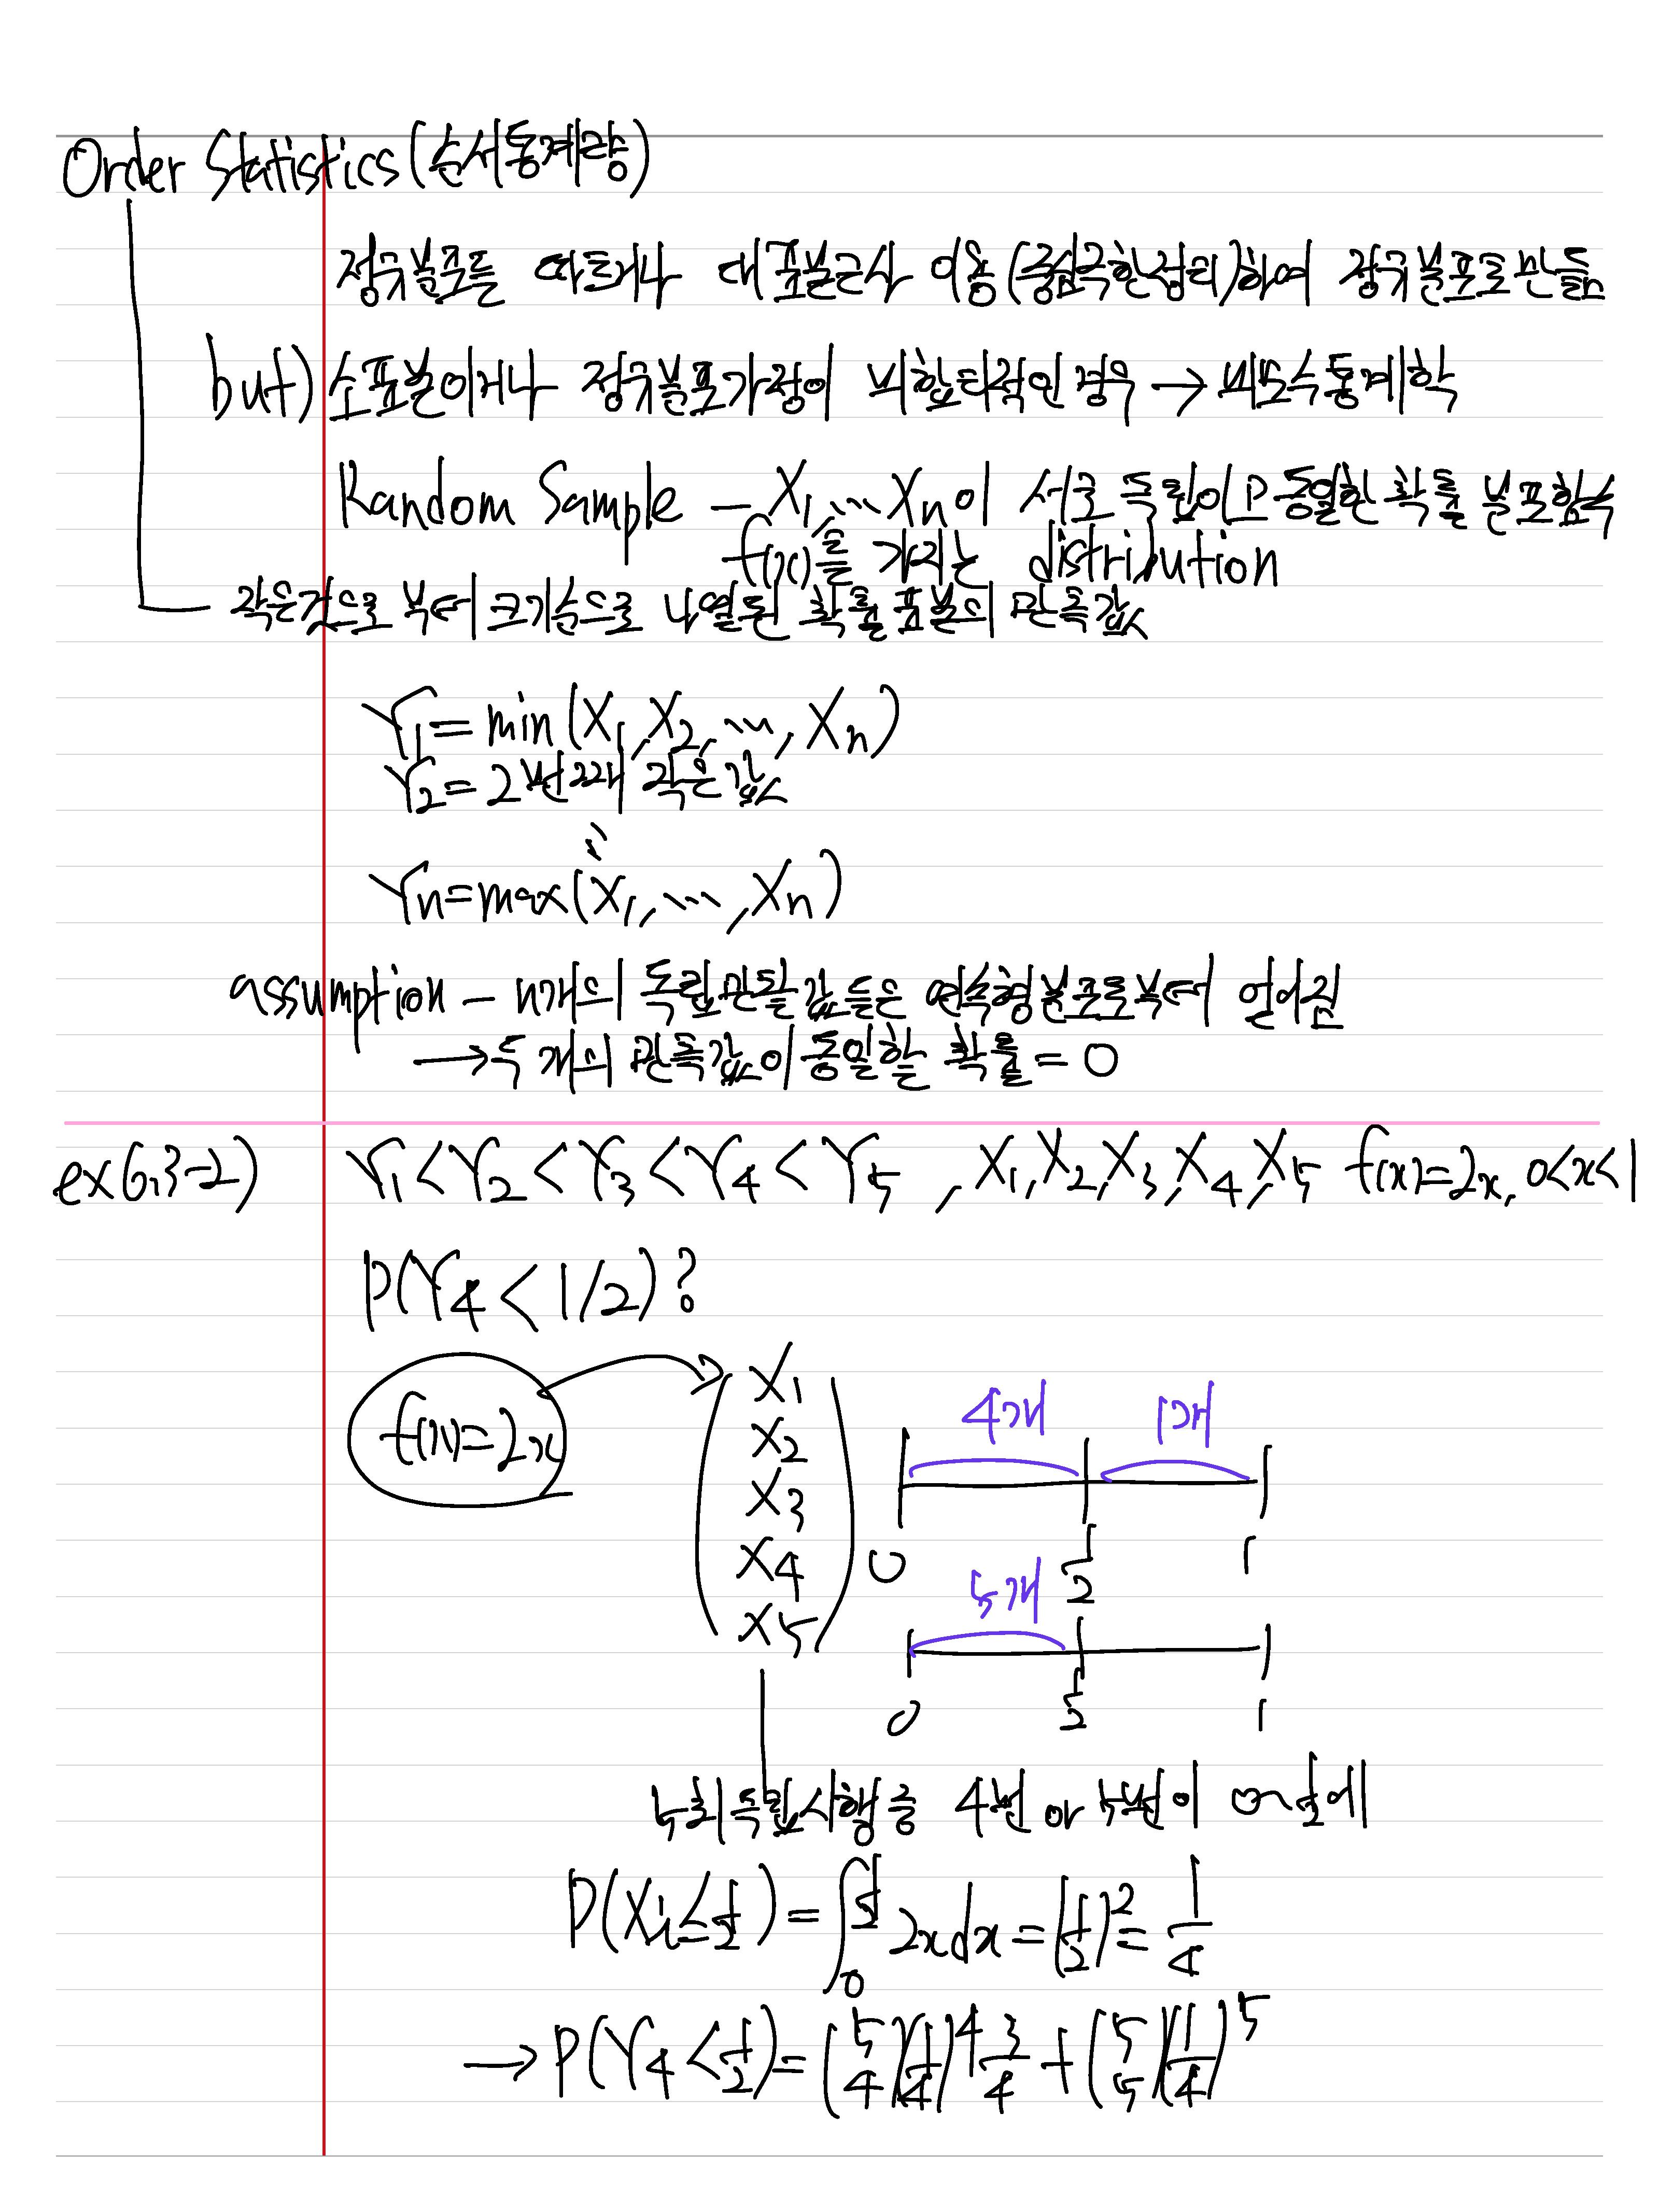 Order Statistics (순서통계량)
정규분포를 따르거나 대표본근사 이용 (중심극한정리)하여 정규분포로 만듦
but) 소표본이거나 정규분포가정이 비합리적인 경우 → 비모수통계학
Random Sample - X1, ... Xn이 서로 독립이고 동일한 확률 분포함수
f(x)를 가지는 distribution
작은것으로 부터 크기순으로 나열된 확률 표본의 관측값
Y1 = min(X1, X2, ..., Xn)
Y2 = 2번째 작은 값
⋮
Yn = max(X1, ..., Xn)
assumption - n개의 독립관찰값들은 연속형분포로부터 얻어짐
→ 두 개의 관측값이 동일할 확률 = 0
ex 6.3-2) Y1 < Y2 < Y3 < Y4 < Y5 , X1, X2, X3, X4, X5 f(x)=2x, 0<x<1
P(Y4 < 1/2)?
f(x)=2x
X1
X2
X3
X4
X5
4개 1개
0 1/2 1
5개
0 1/2 1
5회 독립시행 중 4번 or 5번이 0~1/2에
P(Xi ≤ 1/2) = ∫₀^(1/2) 2x dx = (1/2)² = 1/4
→ P(Y4 < 1/2) = (5 4)(1/4)⁴ 3/4 + (5 5)(1/4)⁵